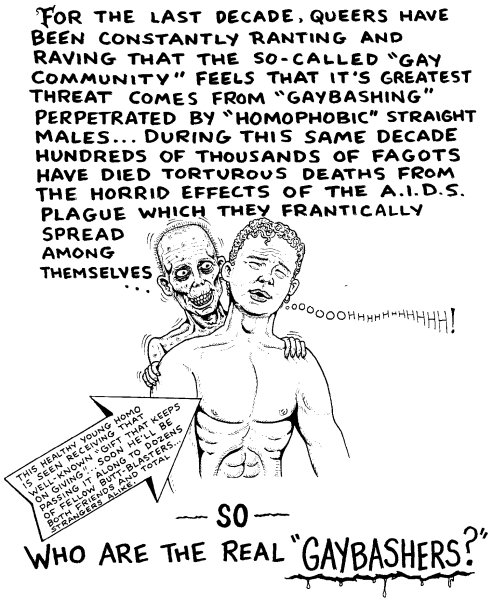 FOR THE LAST DECADE, QUEERS HAVE
BEEN CONSTANTLY RANTING AND
RAVING THAT THE SO-CALLED "GAY
COMMUNITY" FEELS THAT IT'S GREATEST
THREAT COMES FROM "GAYBASHING"
PERPETRATED BY "HOMOPHOBIC" STRAIGHT
MALES... DURING THIS SAME DECADE
HUNDREDS OF THOUSANDS OF FAGOTS
HAVE DIED TORTUROUS DEATHS FROM
THE HORRID EFFECTS OF THE A.I.D.S.
PLAGUE WHICH THEY FRANTICALLY
SPREAD
AMONG
THEMSELVES
...
OOOOOOHHHHHHHHHH!
THIS HEALTHY YOUNG HOMO
IS SEEN RECEIVING THAT
WELL-KNOWN "GIFT THAT KEEPS
ON GIVING"!.. SOON HE'LL BE
PASSING IT ALONG TO DOZENS
OF FELLOW BUTT-BLASTERS..
BOTH FRIENDS AND TOTAL
STRANGERS ALIKE!
— SO —
WHO ARE THE REAL "GAYBASHERS?"